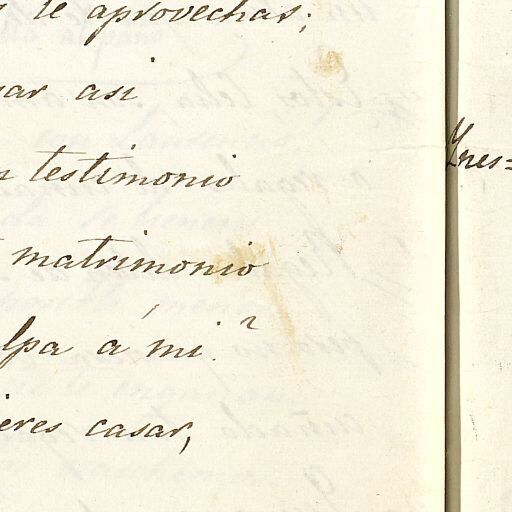 te aprovechas;
ar asi
testimonio
matrimonio
lpa á mi?
ieres casar,
Ynes=